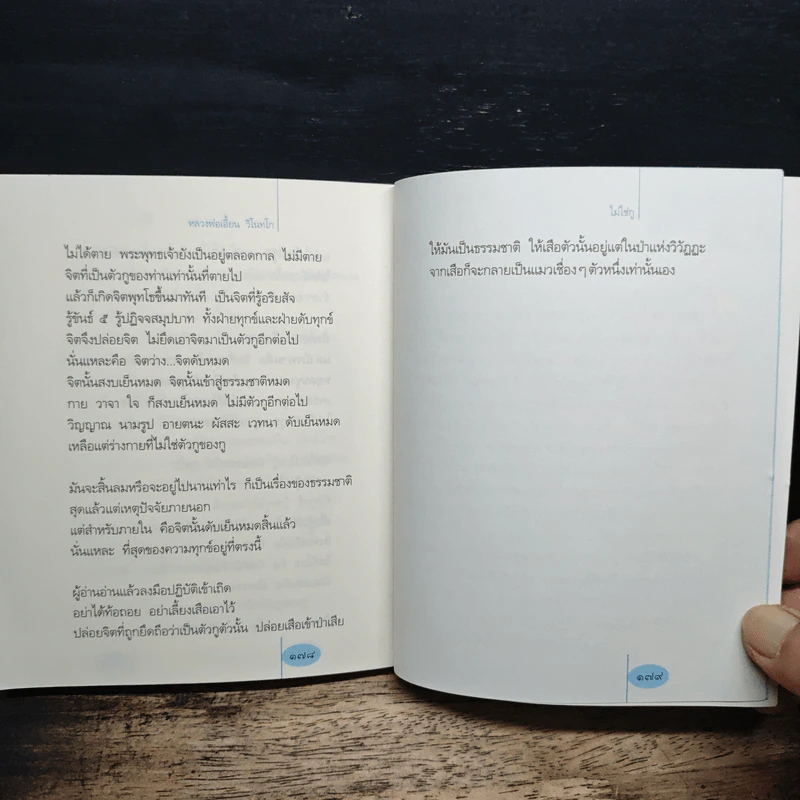 หลวงพ่อเอี้ยน วิโนทโก
ไม่ได้ตาย พระพุทธเจ้ายังเป็นอยู่ตลอดกาล ไม่มีตาย
จิตที่เป็นตัวกูของท่านเท่านั้นที่ตายไป
แล้วก็เกิดจิตพุทโธขึ้นมาทันที เป็นจิตที่รู้อริยสัจ
รู้ขันธ์ ๕ รู้ปฏิจจสมุปบาท ทั้งฝ่ายทุกข์และฝ่ายดับทุกข์
จิตจึงปล่อยจิต ไม่ยึดเอาจิตมาเป็นตัวกูอีกต่อไป
นั่นแหละคือ จิตว่าง...จิตดับหมด
จิตนั้นสงบเย็นหมด จิตนั้นเข้าสู่ธรรมชาติหมด
กาย วาจา ใจ ก็สงบเย็นหมด ไม่มีตัวกูอีกต่อไป
วิญญาณ นามรูป อายตนะ ผัสสะ เวทนา ดับเย็นหมด
เหลือแต่ร่างกายที่ไม่ใช่ตัวกูของกู
มันจะสิ้นลมหรือจะอยู่ไปนานเท่าไร ก็เป็นเรื่องของธรรมชาติ
สุดแล้วแต่เหตุปัจจัยภายนอก
แต่สำหรับภายใน คือจิตนั้นดับเย็นหมดสิ้นแล้ว
นั่นแหละ ที่สุดของความทุกข์อยู่ที่ตรงนี้
ผู้อ่านอ่านแล้วลงมือปฏิบัติเข้าเถิด
อย่าได้ท้อถอย อย่าเลี้ยงเสือเอาไว้
ปล่อยจิตที่ถูกยึดถือว่าเป็นตัวกูตัวนั้น ปล่อยเสือเข้าป่าเสีย
๑๗๘
ไม่ใช่กู
ให้มันเป็นธรรมชาติ ให้เสือตัวนั้นอยู่แต่ในป่าแห่งวิวัฏฏะ
จากเสือก็จะกลายเป็นแมวเชื่องๆ ตัวหนึ่งเท่านั้นเอง
๑๗๙